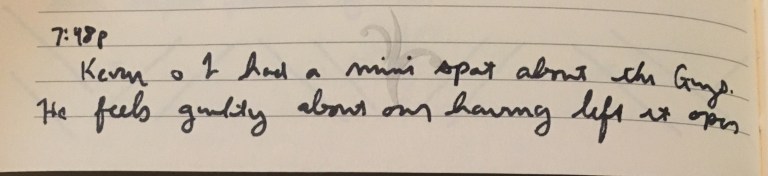 7:48p
Kevin & I had a mini spat about the Guys.
He feels guilty about our having left it open